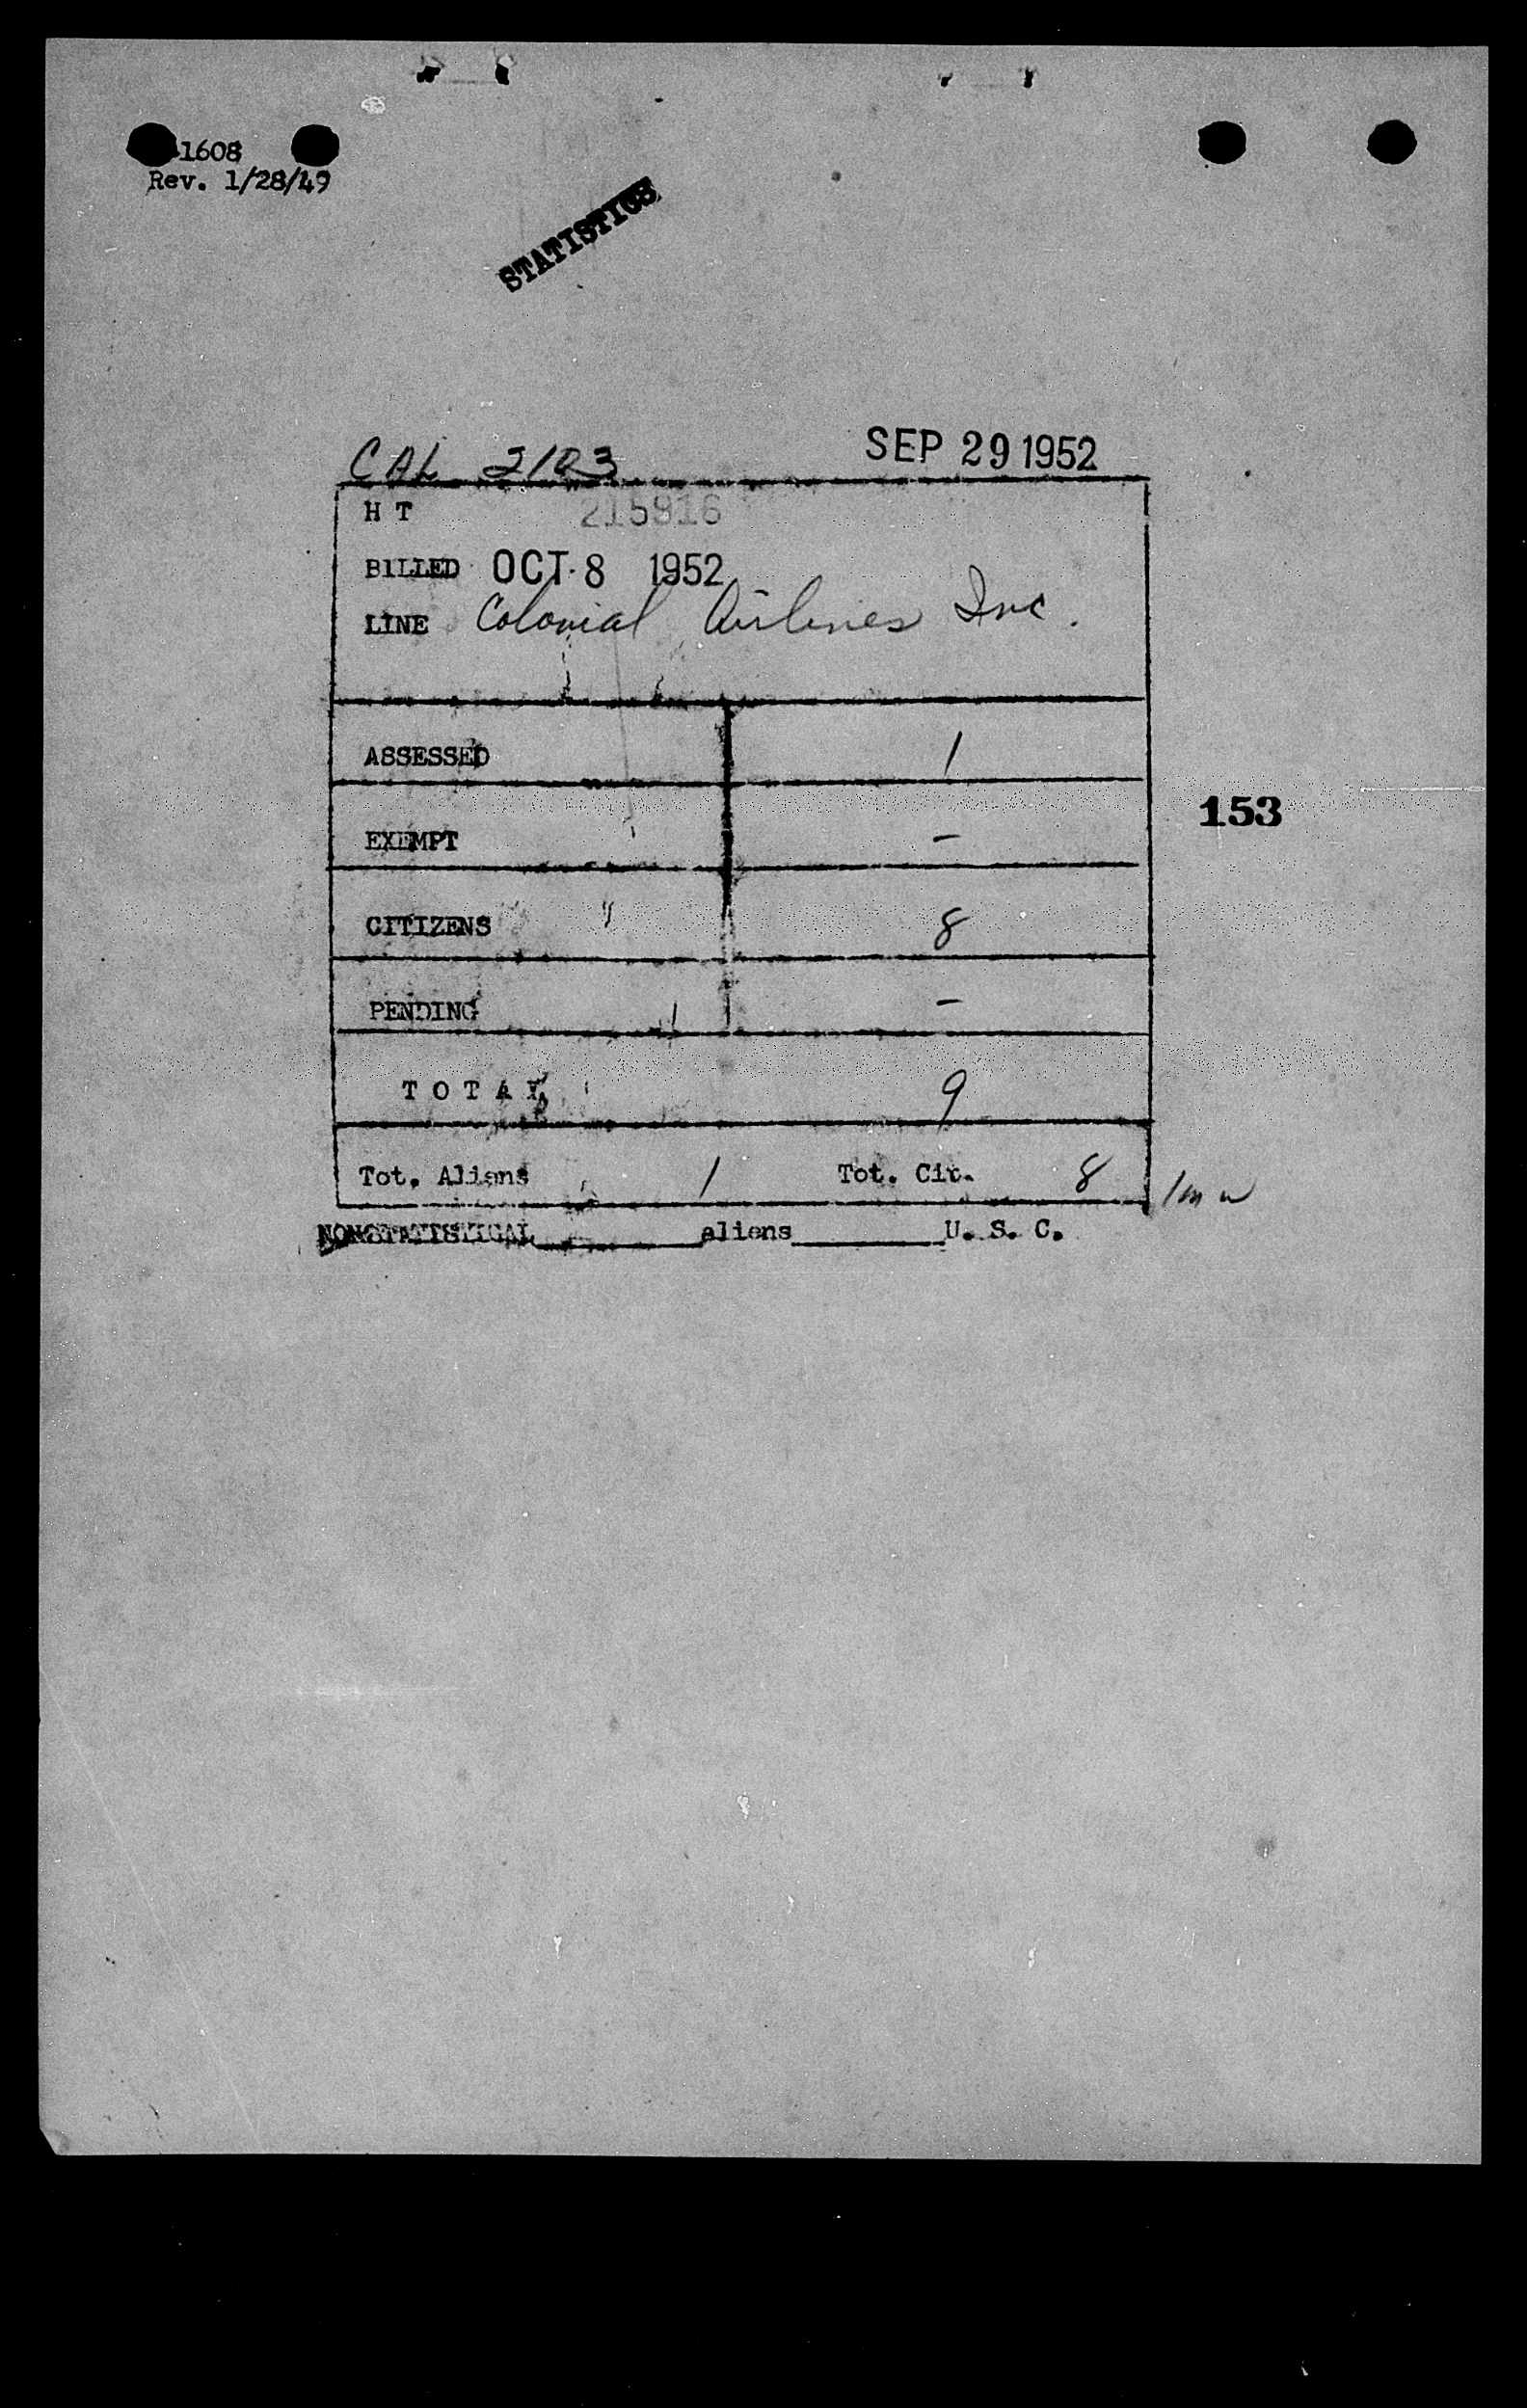 1608
Rev. 1/28/49
STATISTICS
CAL 2103 SEP 29 1952
H T 215916
BILLED OCT. 8 1952
LINE Colonial Airlines Inc.
ASSESSED 1
153
EXEMPT -
CITIZENS 8
PENDING -
TOTAL 9
Tot. Aliens 1 Tot. Cit. 8 1 m w
NONSTATISTICAL aliens U. S. C.